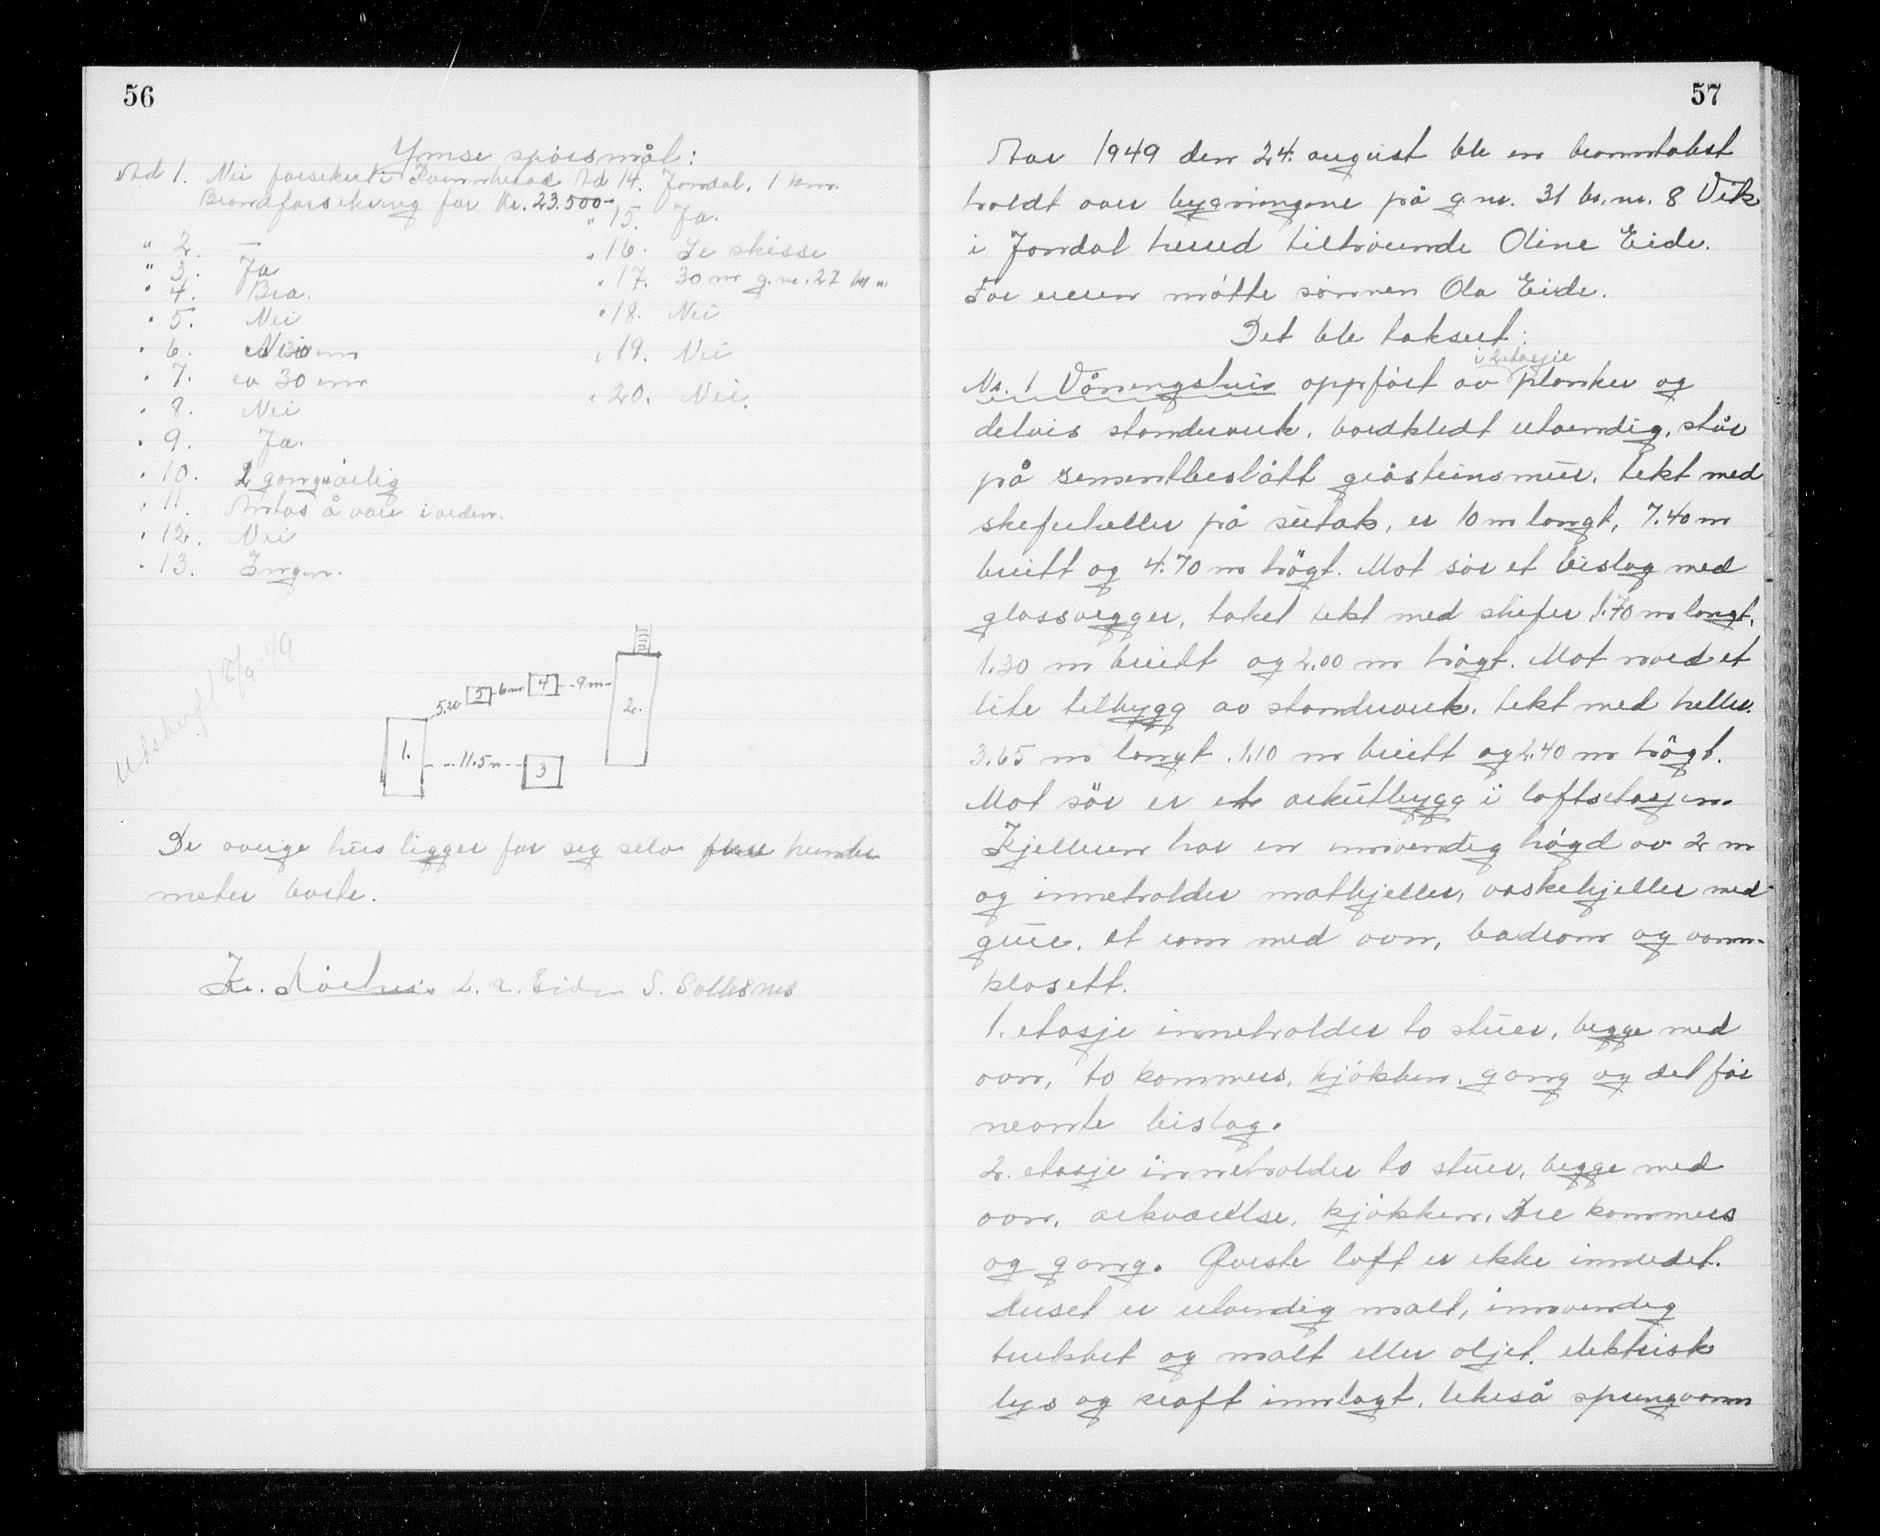 56
Ymse spørsmål:
Ad 1. Nei forsikert i Kvinnherad
Brandforsikring for Kr. 23.500-
" 2. —
" 3. Ja
" 4. Bra.
" 5. Nei
" 6. Nei
" 7. ca 30 cm
" 8. Nei
" 9. Ja.
" 10. 2 gong årlig
" 11. Antas å være i orden.
" 12. Nei
" 13. Ingen.
Ad 14. Jondal, 1 km.
" 15. Ja.
" 16. Se skisse
" 17. 30 m g.nr. 27 br n
" 18. Nei
" 19. Nei
" 20. Nei.
Utskrift 8/9 49
1. 5 4 2. 3
6 m 9 m
11.5 m
De øvrige hus ligger for seg selv flere hundre
meter borte.
L. A. Eide S. Solesnes
57
Aar 1949 den 24. august ble en branntakst
holdt over bygningene på g.nr. 31 br.nr. 8 Vik
i Jondal herred tilhørende Oline Eide.
For eieren møtte sønnen Ola Eide.
Det ble taksert:
Nr. 1 Våningshus oppført av i 2 etasjer planker og
delvis stenderverk, bordkledt utvendig, står
på sementbeslått gråsteinsmur, tekt med
skiferheller på sutak, er 10 m langt, 7.40 m
breitt og 4.70 m høgt. Mot sør et bislag med
glassvegger, taket tekt med skifer 1.70 m langt,
1.30 m breitt og 2.00 m høgt. Mot nord et
lite tilbygg av stenderverk, tekt med heller.
3.65 m langt. 1.10 m breitt og 2.40 m høgt.
Mot sør er et arkutbygg i loftsetasjen.
Kjelleren har en innvendig høgd av 2 m
og inneholder matkjeller, vaskekjeller med
grue, et rom med ovn, badrom og vann-
klosett.
1. etasje inneholder to stuer, begge med
ovn, to kammers, kjøkken, gang og det før
nevnte bislag.
2. etasje inneholder to stuer, begge med
ovn, arkværelse, kjøkken, tre kammers
og gang. Øverste loft er ikke innredet.
Huset er utvendig malt, innvendig
trekket og malt eller oljet, elektrisk
lys og kraft innlagt, likeså springvann